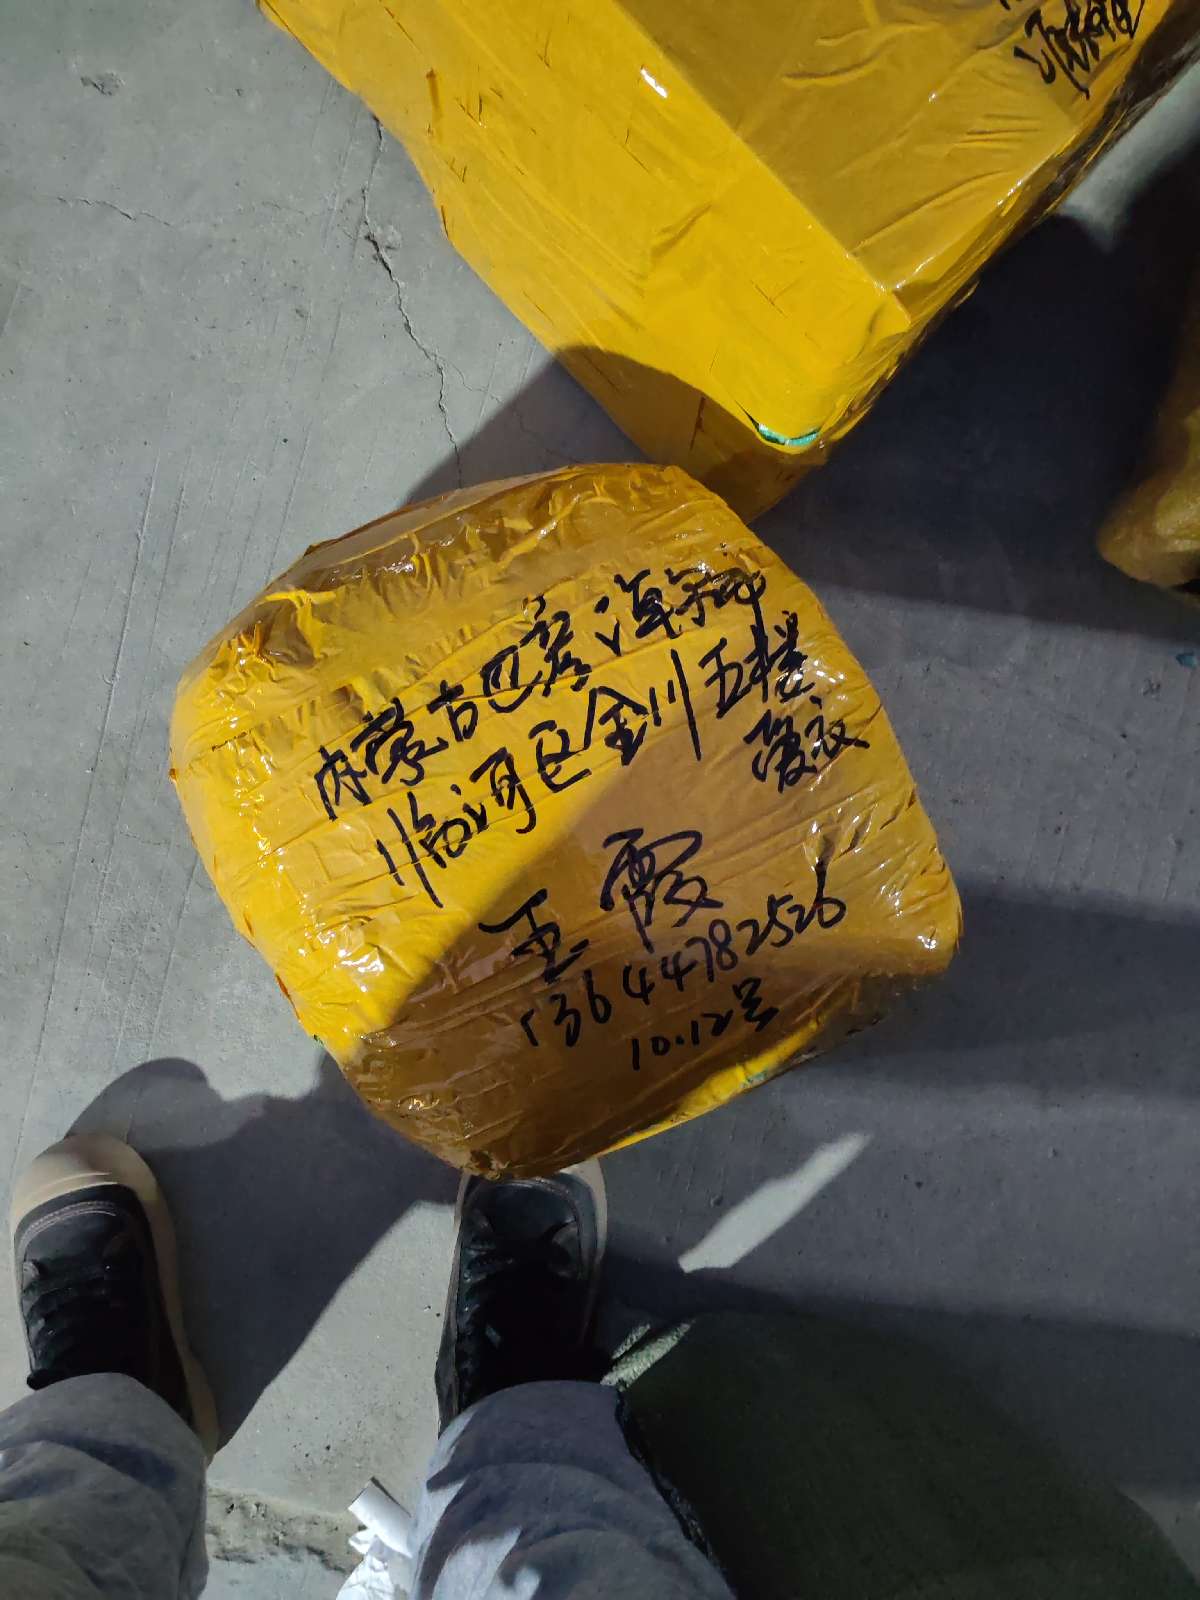 内蒙古巴彦淖尔市
临河区金川五楼
爱衣
王霞
13644782526
10.12号